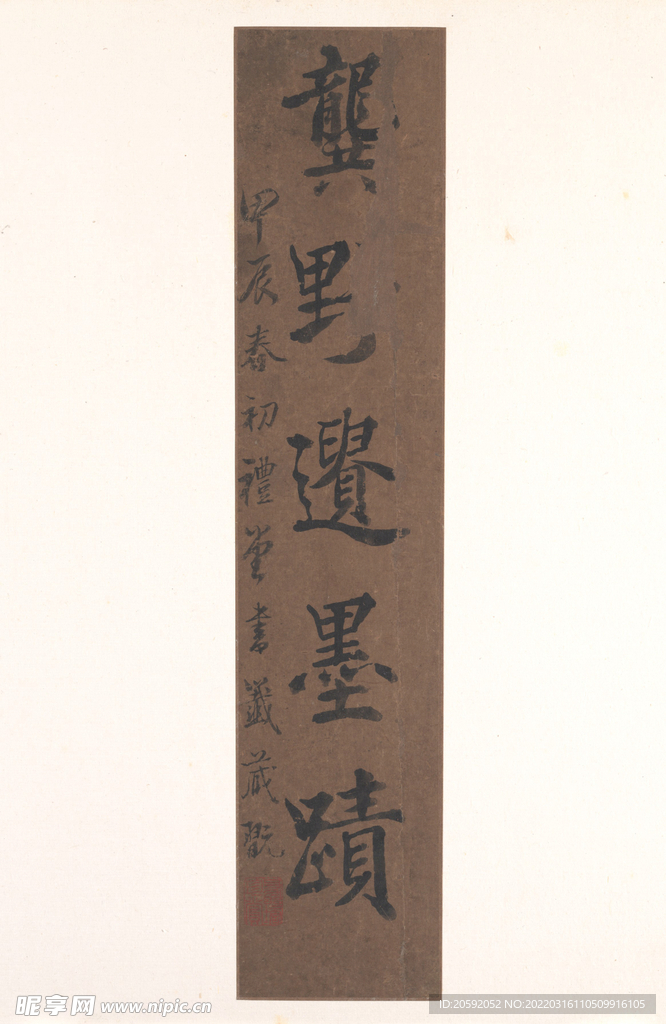 龔野遺墨蹟
甲辰春初禮堂書籤藏翫
昵享网 www.nipic.cn
ID:20592052 NO:20220316110509916105